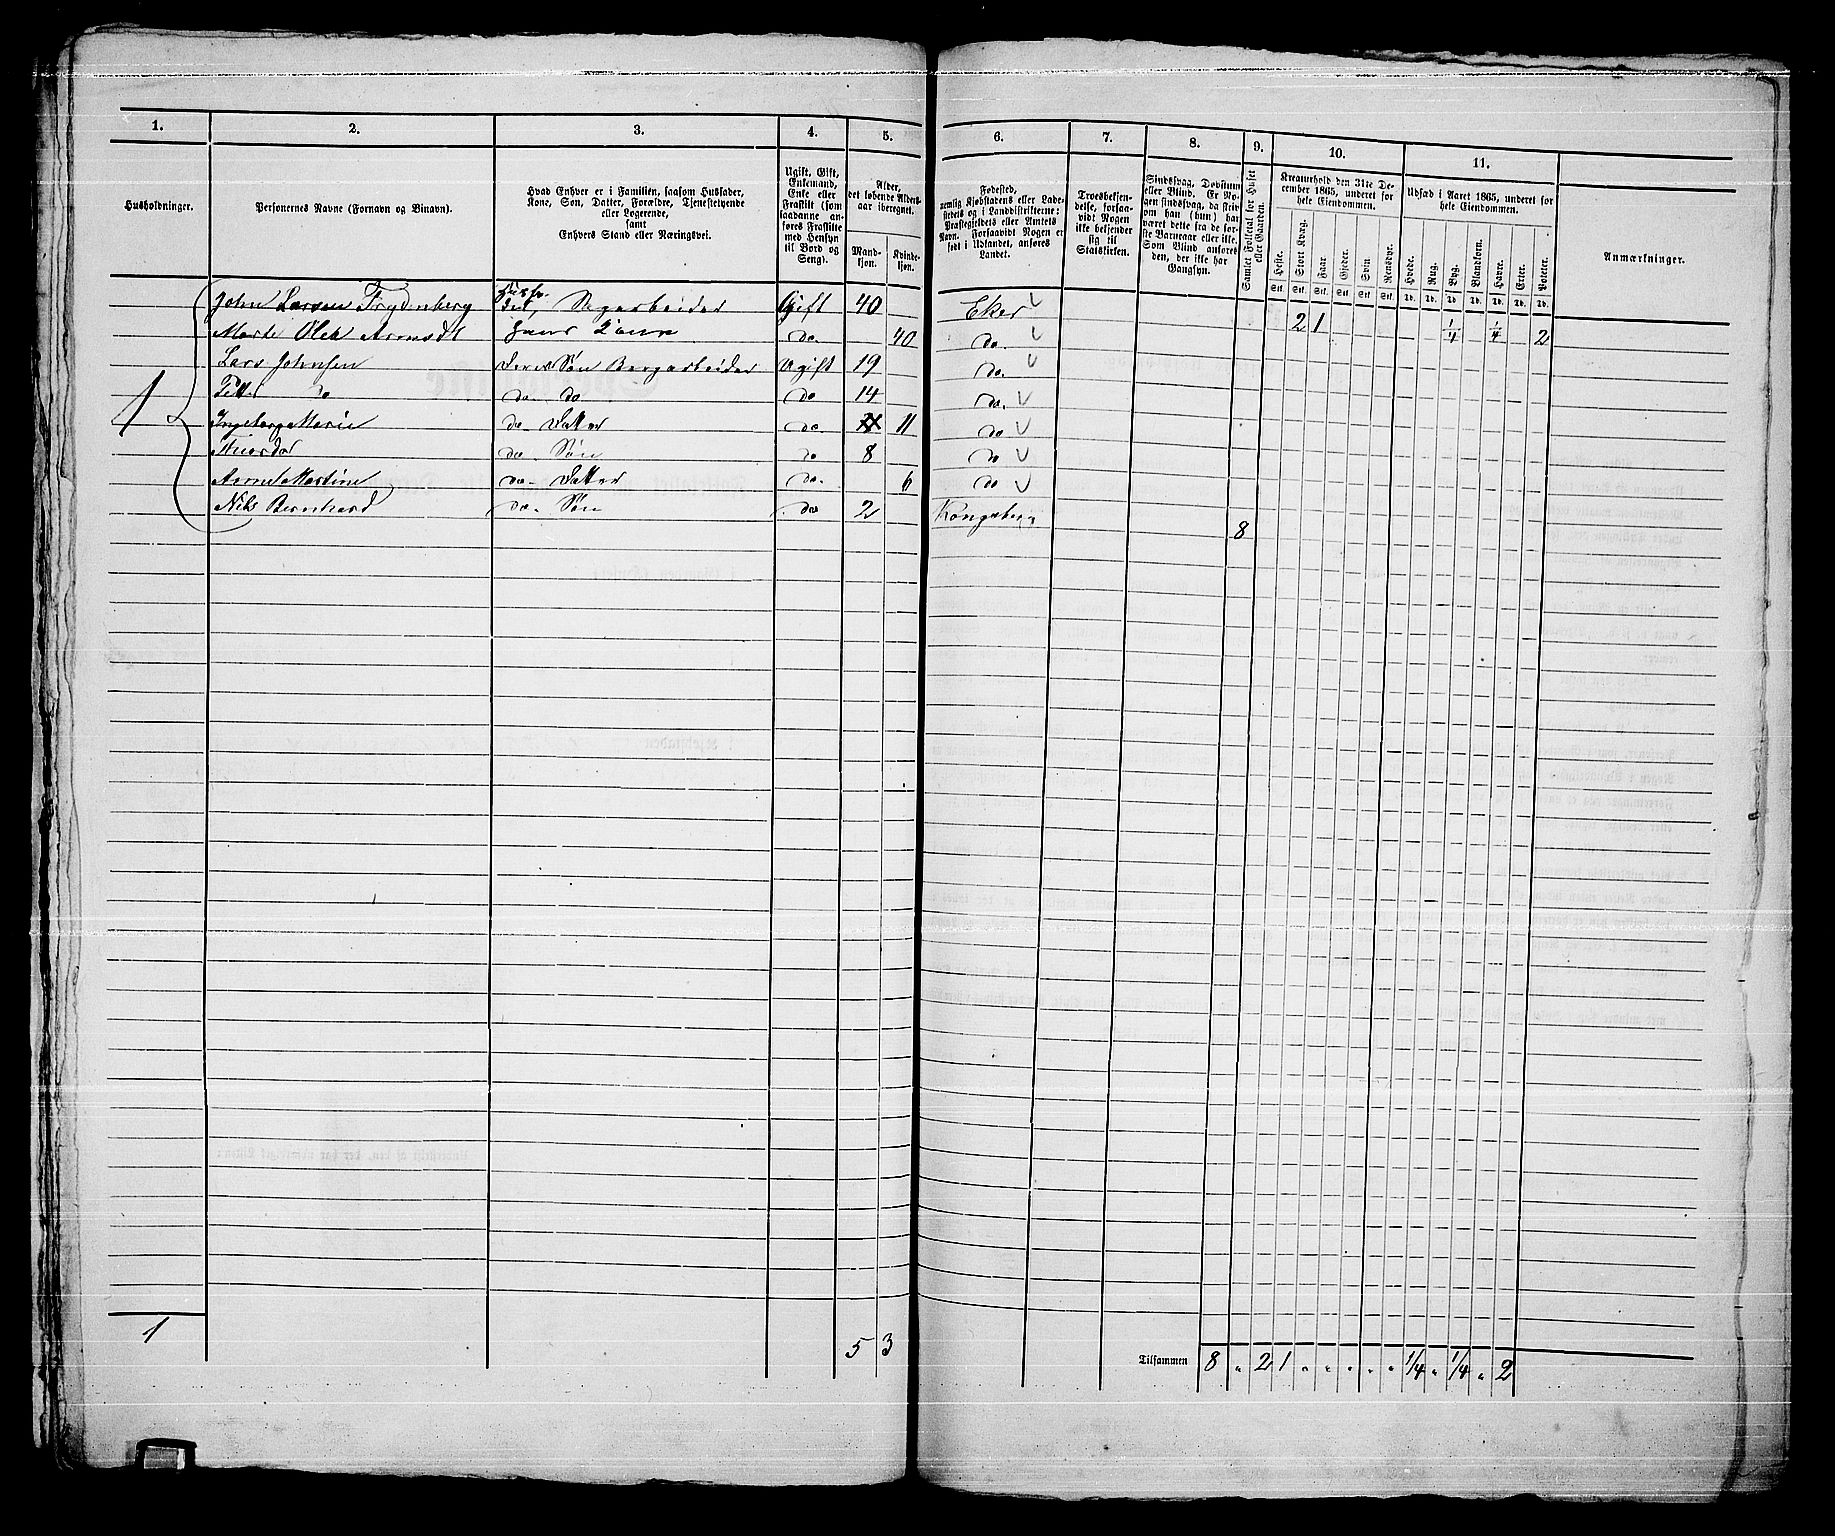 1. 2. 3. 4. 5. 6. 7. 8. 9. 10. 11.
Husholdninger.
Personernes Navne (Fornavn og Binavn).
Hvad Enhver er i Familien, saasom Husfader,
Kone, Søn, Datter, Forældre, Tjenestetyende
eller Logerende,
samt
Enhvers Stand eller Næringsvei.
Ugift, Gift,
Enkemand,
Enke eller
Fraskilt (som
saadanne an-
føres Fraskilte
med Hensyn
til Bord og
Seng).
Alder,
det løbende Alders-
aar iberegnet.
Mand-
kjøn.
Kvinde-
kjøn.
Fødested,
nemlig Kjøbstadens eller Lade-
stedets og i Landdistrikterne:
Præstegjeldets eller Amtets
Navn. Forsaavidt Nogen er
født i Udlandet, anføres
Landet.
Troesbekjen-
delse, forsaa-
vidt Nogen
ikke bekjender
sig til
Statskirken.
Sindssvag, Døvstum
eller Blind. Er No-
gen sindssvag, da skriv
om han (hun) har
været dette fra de før-
ste Barneaar eller ikke.
Som Blind anføres
den, der ikke har
Gangsyn.
Samlet Folketal for Huset
eller Gaarden.
Kreaturhold den 31te De-
cember 1865, underet for
hele Eiendommen.
Heste. Stort Kvæg. Faar. Gjeder. Svin. Rensdyr.
Stk. Stk. Stk. Stk. Stk. Stk.
Udsæd i Aaret 1865, underet for
hele Eiendommen.
Hvede. Rug. Byg. Blandkorn. Havre. Erter. Poteter.
Td. Td. Td. Td. Td. Td. Td.
Anmærkninger.
John Larsen Frydenberg Husfa- Gift 40 Eker
2 1 1/4 1/4 2
Marte Hans Kone do 40 do.
Lars Johnsen Søn Bergarbeider Ugift 19 do.
do do. do do 14 do.
1 Ingeborg Marie do. Datter do. 11 do
do. Søn do 8 do
Martine do. Datter do. 6 do
Nils Bernhard do. Søn do 2 Kongsberg
8
1 5 3
Tilsammen 8 " 2 1 " " " " " 1/4 " 1/4 " 2